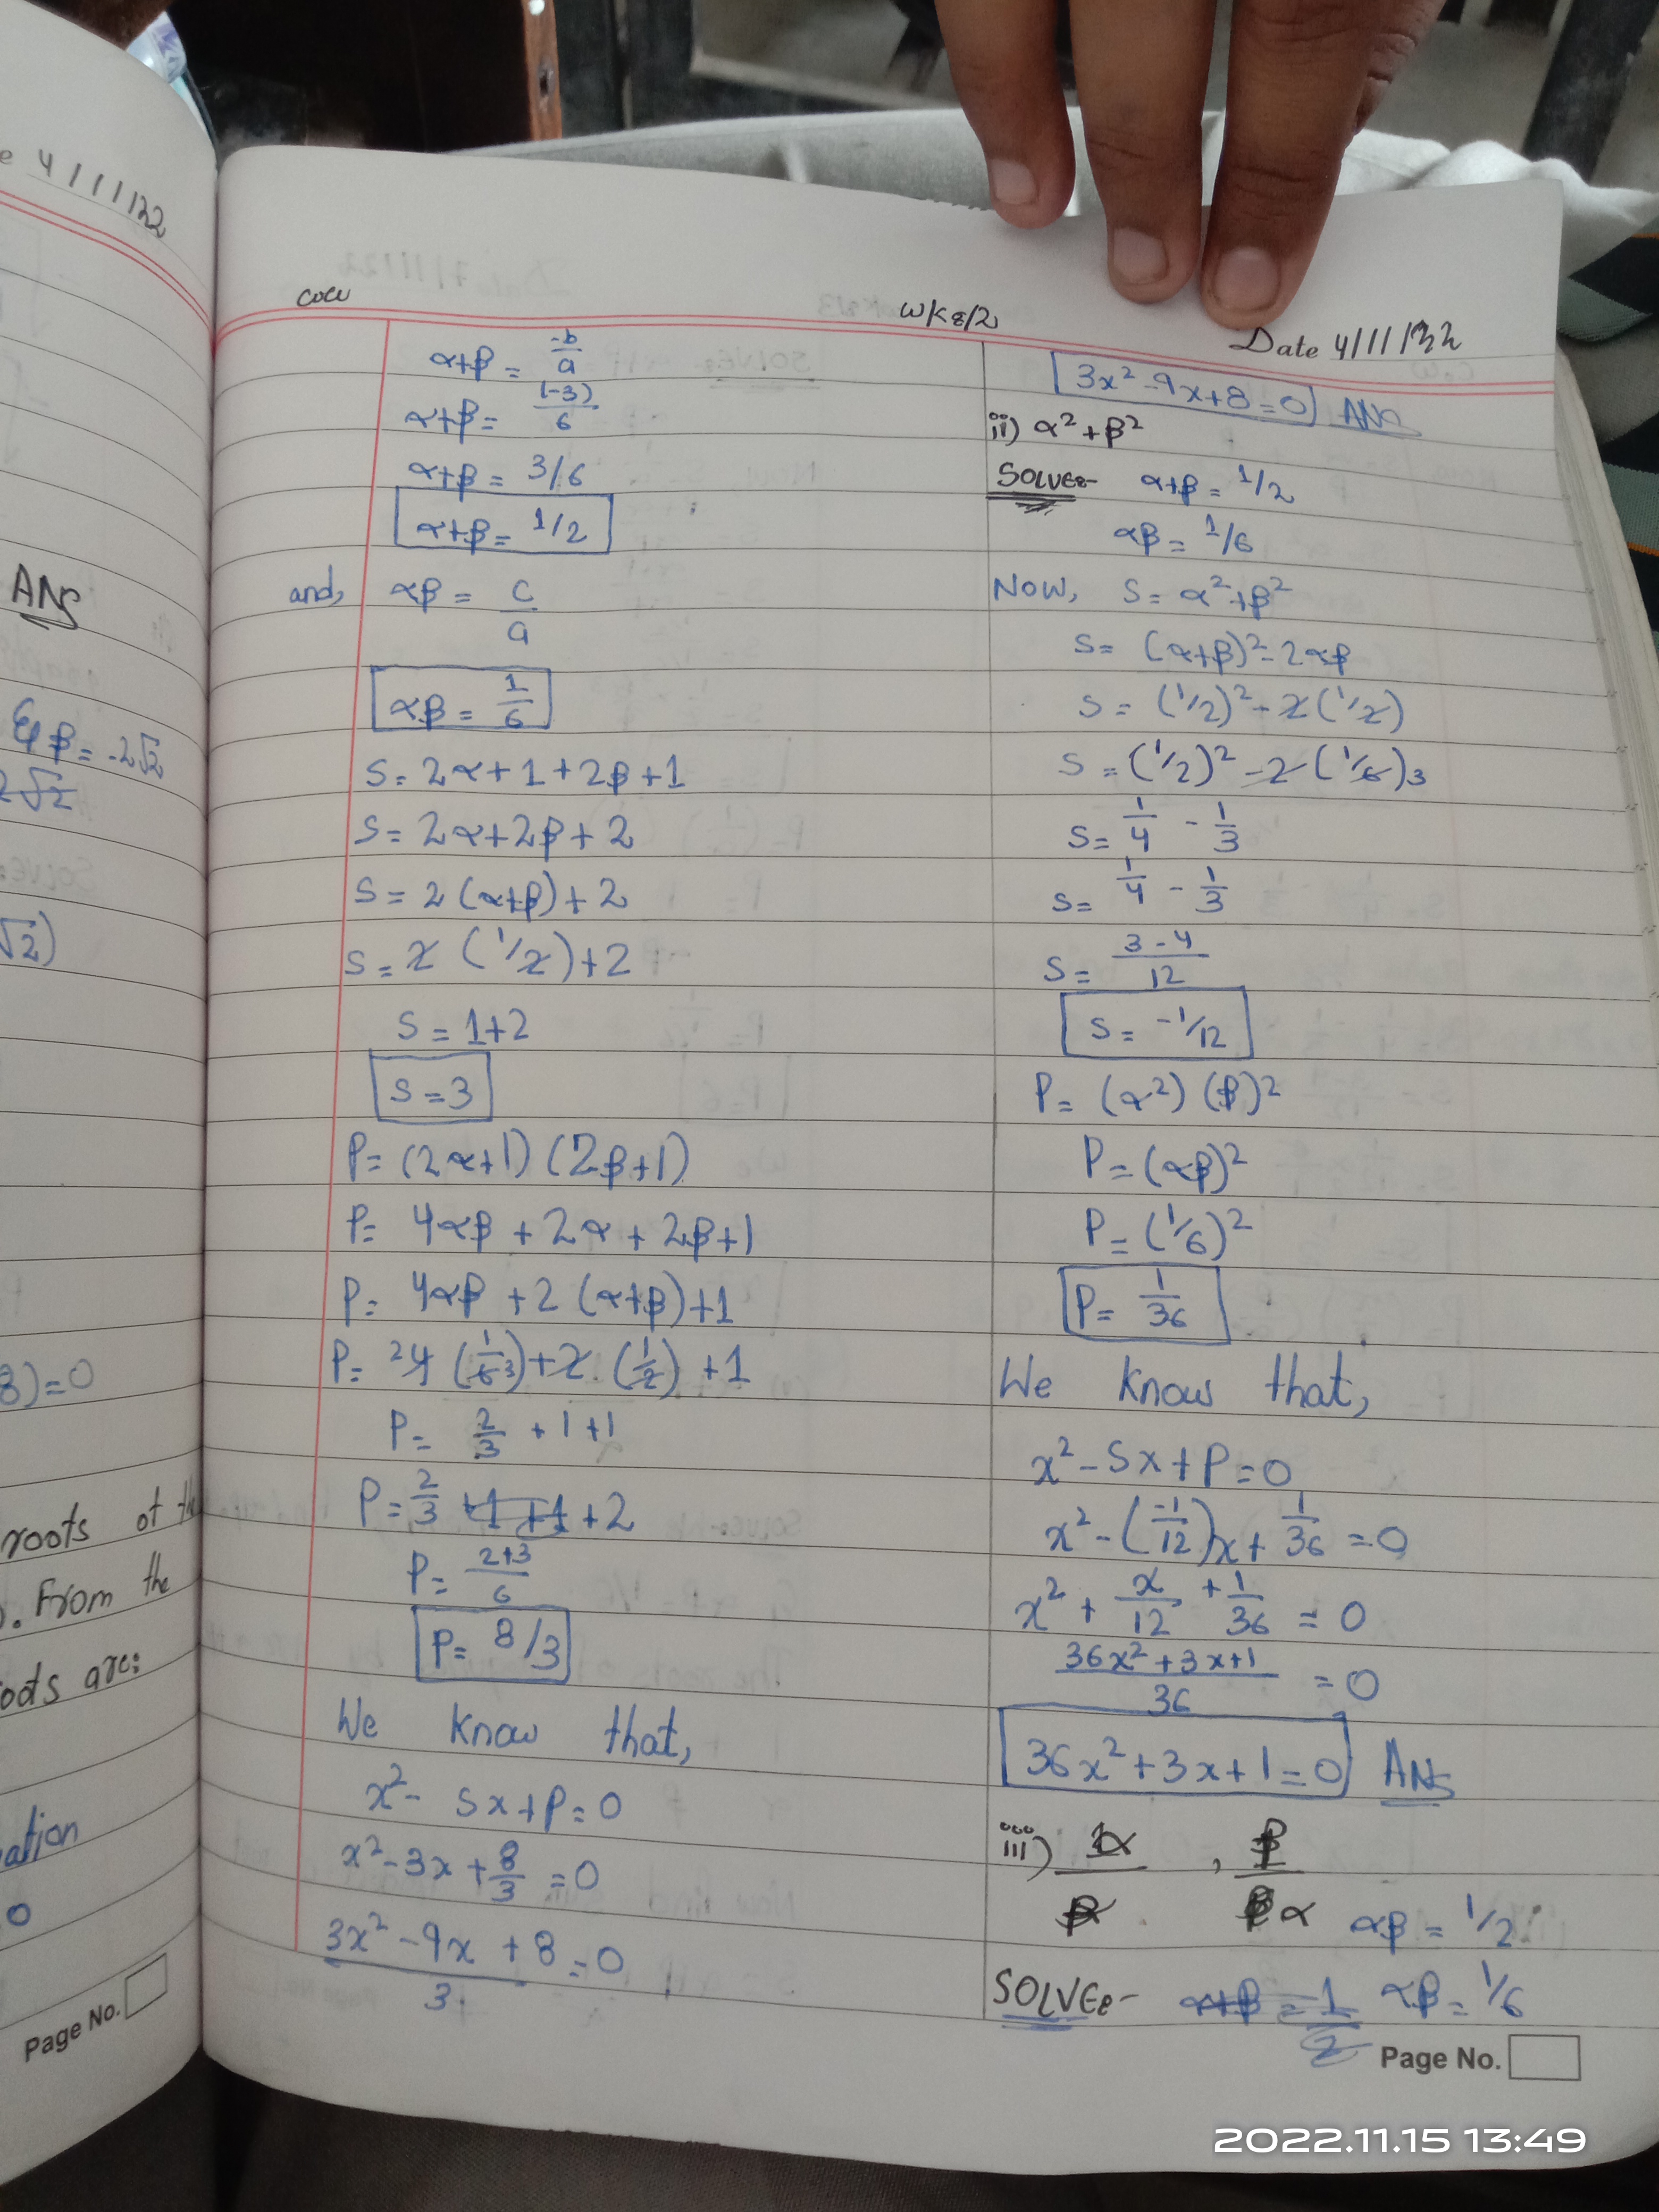 e 4/11/22
ANS
& β = -2√2
2√2
√2)
8)=0
roots of the
. From the
oots are:
ation
0
Page No.
cow
wk8/2
Date 4/11/22
α+β = -b/a
α+β = (-3)/6
α+β = 3/6
α+β = 1/2
and, αβ = c/a
αβ = 1/6
S = 2α+1+2β+1
S = 2α+2β+2
S = 2(α+β)+2
S = 2(1/2)+2
S = 1+2
S = 3
P = (2α+1) (2β+1)
P = 4αβ + 2α + 2β+1
P = 4αβ + 2(α+β)+1
P = 24 (1/6 3) + 2 . (1/2) + 1
P = 2/3 + 1 + 1
P = 2/3 +1 +1 +2
P = 2+3/6
P = 8/3
We know that,
x² - Sx + P = 0
x² - 3x + 8/3 = 0
3x² - 9x + 8/3 = 0
3x² - 9x + 8 = 0 ANS
ii) α² + β²
SOLVE:- α+β = 1/2
αβ = 1/6
NOW, S = α² + β²
S = (α+β)² - 2αβ
S = (1/2)² - 2(1/2)
S = (1/2)² - 2(1/6)3
S = 1/4 - 1/3
S = 1/4 - 1/3
S = 3-4/12
S = -1/12
P = (α²) (β)²
P = (αβ)²
P = (1/6)²
P = 1/36
We know that,
x² - Sx + P = 0
x² - (-1/12)x + 1/36 = 0
x² + x/12 + 1/36 = 0
36x² + 3x + 1/36 = 0
36x² + 3x + 1 = 0 ANS
iii) α/β , β/α
αβ = 1/2
SOLVE:- α+β = 1/2 αβ = 1/6
Page No.
2022.11.15 13:49